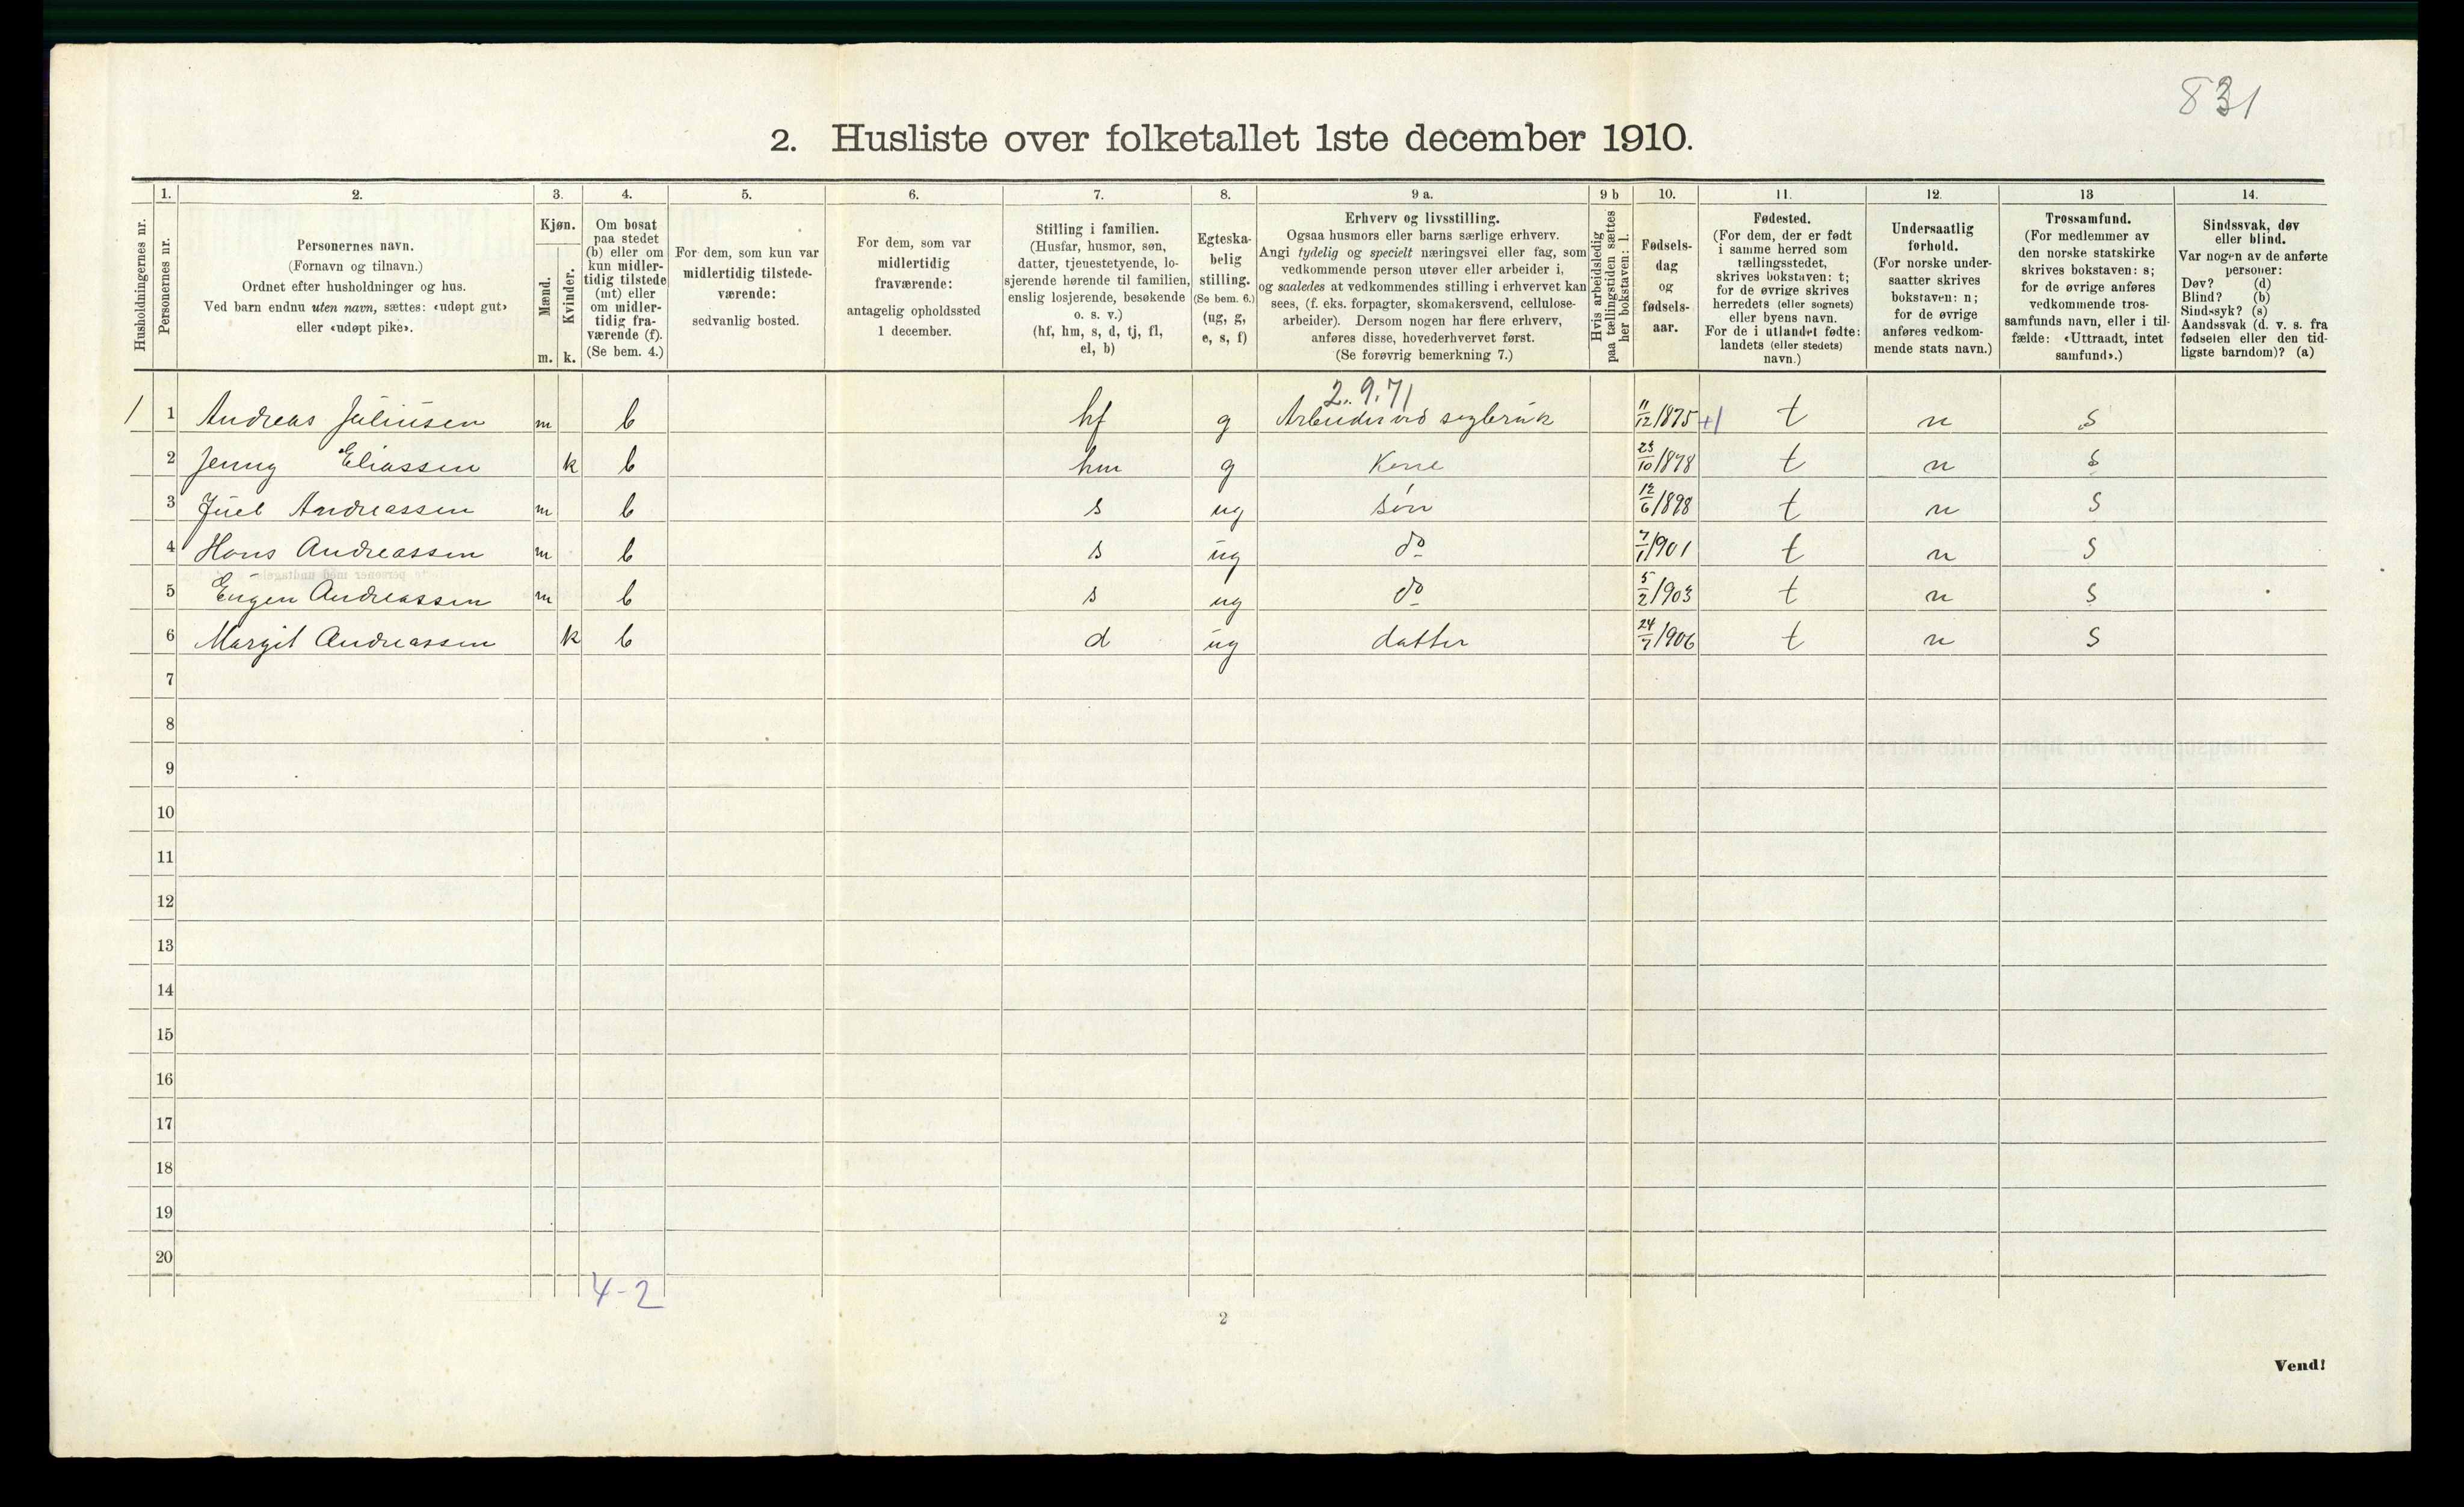 831
2. Husliste over folketallet 1ste december 1910.
Husholdningernes nr.
1.
Personernes nr.
2.
Personernes navn.
(Fornavn og tilnavn.)
Ordnet efter husholdninger og hus.
Ved barn endnu uten navn, sættes: «udøpt gut»
eller «udøpt pike».
3.
Kjøn.
Mænd.
Kvinder.
m. k.
4.
Om bosat
paa stedet
(b) eller om
kun midler-
tidig tilstede
(mt) eller
om midler-
tidig fra-
værende (f).
(Se bem. 4.)
5.
For dem, som kun var
midlertidig tilstede-
værende:
sedvanlig bosted.
6.
For dem, som var
midlertidig
fraværende:
antagelig opholdssted
1 december.
7.
Stilling i familien.
(Husfar, husmor, søn,
datter, tjenestetyende, lo-
sjerende hørende til familien,
enslig losjerende, besøkende
o. s. v.)
(hf, hm, s, d, tj, fl,
el, b)
8.
Egteska-
belig
stilling.
(Se bem. 6.)
(ug, g,
e, s, f)
9 a.
Erhverv og livsstilling.
Ogsaa husmors eller barns særlige erhverv.
Angi tydelig og specielt næringsvei eller fag, som
vedkommende person utøver eller arbeider i,
og saaledes at vedkommendes stilling i erhvervet kan
sees, (f. eks. forpagter, skomakersvend, cellulose-
arbeider). Dersom nogen har flere erhverv,
anføres disse, hovederhvervet først.
(Se forøvrig bemerkning 7.)
9 b
Hvis arbeidsledig
paa tællingstiden sættes
her bokstaven: l.
10.
Fødsels-
dag
og
fødsels-
aar.
11.
Fødested.
(For dem, der er født
i samme herred som
tællingsstedet,
skrives bokstaven: t;
for de øvrige skrives
herredets (eller sognets)
eller byens navn.
For de i utlandet fødte:
landets (eller stedets)
navn.)
12.
Undersaatlig
forhold.
(For norske under-
saatter skrives
bokstaven: n;
for de øvrige
anføres vedkom-
mende stats navn.)
13
Trossamfund.
(For medlemmer av
den norske statskirke
skrives bokstaven: s;
for de øvrige anføres
vedkommende tros-
samfunds navn, eller i til-
fælde: «Uttraadt, intet
samfund».)
14.
Sindssvak, døv
eller blind.
Var nogen av de anførte
personer:
Døv? (d)
Blind? (b)
Sindssyk? (s)
Aandssvak (d. v. s. fra
fødselen eller den tid-
ligste barndom)? (a)
2.9.71
1 1 Andreas Juliusen m b hf g Arbeider ved sagbruk 11/12 1875 +1 t n s
2 Jenny Eliassen k b hm g Kone 23/10 1878 t n s
3 Juel Andreassen m b s ug søn 12/6 1898 t n s
4 Hans Andreassen m b s ug do 7/1 1901 t n s
5 Eugen Andreassen m b s ug do 5/2 1903 t n s
6 Margit Andreassen k b d ug datter 24/7 1906 t n s
7
8
9
10
11
12
13
14
15
16
17
18
19
20
4-2
2
Vend!